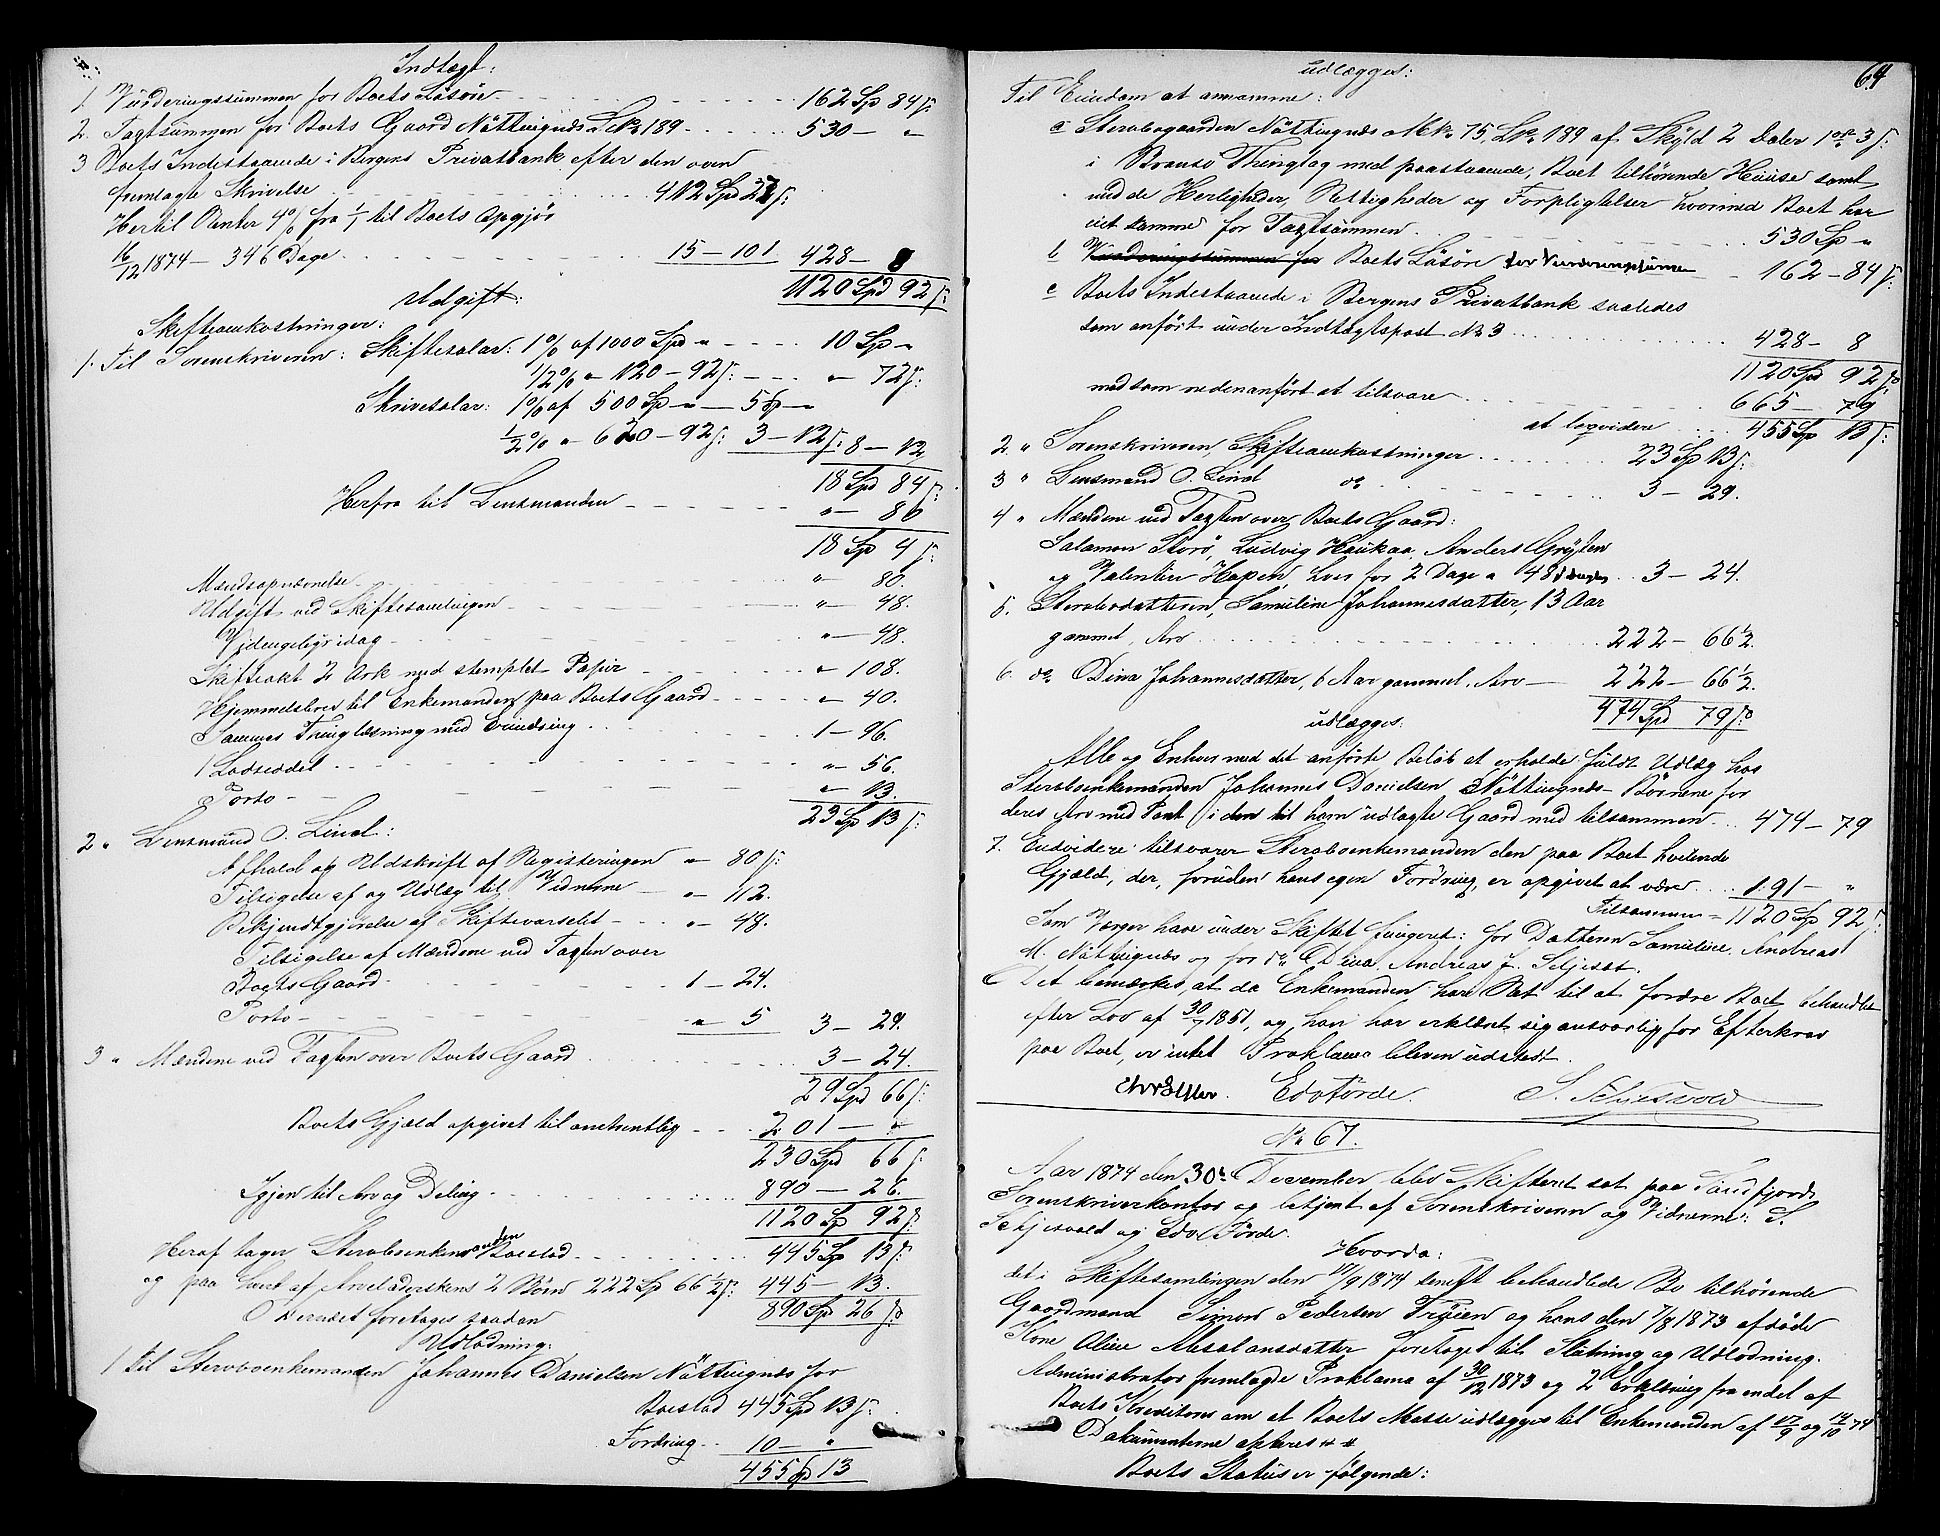 Indtægt:
1. Vurderingssummen for Boets Løsøre 162 Sp 84 s:
2. Taxtsummen for Boets Gaard Nöttingnæs LNo 189 530 — "
3 Boets Indestaaende i Bergens Privatbank efter den oven
fremlagte Skrivelse 412 Spd 27 s:
Hertil Renter 4% fra 1/1 til Boets Opgjør
16/12 1874 — 346 Dage 15 — 101 428 — 8
1120 Spd 92 s:
Udgift:
Skifteomkostninger:
1. Til Sorenskriveren: Skiftesalær: 1% af 1000 Spd " 10 Sp "
1/2% " 120 — 92 s: " — 72 s:
Skrivesalær: 1% af 500 Sp " — 5 Sp "
1/2% " 620 — 92 s: 3 — 12 s: 8 — 12
18 Spd 84 s:
Herfra til Lensmanden " — 80
18 Sp 4 s:
Mændsopnævnelse " — 80.
Udgift ved Skiftesamlingen " — 48.
Vidnepligtidag " — 48.
Skifteakt 2 Ark med stemplet Papir " — 108.
Hjemmelsbrev til Enkemanden paa Boets Gaard " — 40.
Sammes Thinglæsning med Erindring 1 — 96.
1 Lodseddel " — 56.
Porto " — 13.
23 Sp 13 s:
2 " Lensmand O. Lind:
Afhold og Udskrift af Registeringen " — 80 s:
Tilsigelse af og Udlæg til Vidnerne " — 112.
Bekjendtgjørelse af Skiftevarselet " — 48.
Tilsigelse af Mændene ved Taxten over
Boets Gaard 1 — 24.
Porto " 5 3 — 29.
3 " Mændene ved Taxten over Boets Gaard 3 — 24.
29 Spd 66 s:
Boets Gjæld opgivet til omtrentlig 201 — "
230 Spd 66 s:
Igjen til Arv og Deling 890 — 26.
1120 Sp 92 s:
Heraf tager Sterboenkemanden Boeslod 445 Sp 13 s:
og paa hvert af Arveladerskens 2 Børn 222 Sp 66 1/2 s: 445 — 13.
Dernæst foretoges saadan 890 Sp 26 s:
Udlodning:
1 Til Sterboenkemanden Johannes Danielsen Nöttingnæs for
Boeslod 445 Spd 13 s:
Fordring 10 — "
455 Sp 13
64
udlægges:
Til Eiendom at annamme:
a Sterbogaarden Nöttingnæs MNo 75, LNo 189 af Skyld 2 Daler 1 ort 3 s:
i Bremso Thinglag med paastaaende, Boet tilhørende Huuse samt
med de Herligheder, Rettigheder og Forpligtelser hvormed Boet har
eiet samme for Taxtsummen 530 Sp "
b Vurderingssummen for Boets Løsøre for Vurderingssummen 162 — 84 s:
c Boets Indestaaende i Bergens Privatbank saaledes
som anført under Indtægtspost No 3 428 — 8
1120 Spd 92 s
mod som nedenanført at tilsvare 665 — 79
at liqvidere 455 Sp 13 s:
2 " Sorenskriveren, Skifteomkostninger 23 Sp 13 s:
3 " Lensmand O. Lind do 3 — 29.
4 " Mændene ved Taxten over Boets Gaard:
Salamon Storö, Ludvig Haukaa, Anders Gröften
og Valentin Hopen, hver for 2 Dage a 48 s 3 — 24.
5. Sterbodatteren, Samuline Johannesdatter, 13 Aar
gammel, Arv 222 — 66 1/2.
6. do Dina Johannesdatter, 6 Aar gammel, Arv 222 — 66 1/2.
474 Spd 79 s
udlægges:
Alle og Enhver med det anførte Beløb at erholde fuldt Udlæg hos
Sterboenkemanden Johannes Danielsen Nöttingnæs — Börnene for
deres Arv med Pant i den til ham udlagte Gaard med tilsammen 474 — 79
7. Endvidere tilsvarer Sterboenkemanden den paa Boet hvilende
Gjæld, der, foruden hans egen Fordring, er opgivet at være 191 — "
Tilsammen = 1120 Sp 92 s:
Som Værger have under Skiftet fungeret: for Datteren Samuline, Andreas
M. Nöttingnæs og for do Dina, Andreas J. Seljeset.
Det bemærkes, at da Enkemanden have Ret til at fordre Boet behandlet
efter Lov af 30/7 1851, og han har erklæret sig ansvarlig for Efterkrav
paa Boet, er intet Proklama bleven udstedt.
Edv Förde. S. Seljesvold
No 67.
Aar 1874 den 30te December blev Skifteret sat paa Søndfjords
Sorenskriverkontor og betjent af Sorenskriveren og Vidnerne: S.
Seljesvold og Edv Förde.
Hvorda:
det i Skiftesamlingen den 17/9 1874 senest behandlede Bo tilhørende
Gaardmand Simon Pedersen Tröien og hans den 7/8 1873 afdøde
Kone Oline Absalonsdatter foretoges til Slutning og Udlodning.
Administrator fremlagde Proklama af 30/12 1873 og 2 Erklæring fra endel af
Boets Kreditorer om at Boets Masse udlægges til Enkemanden af 17/9 og 14/10 74
Dokumenterne
Boets Status er følgende: